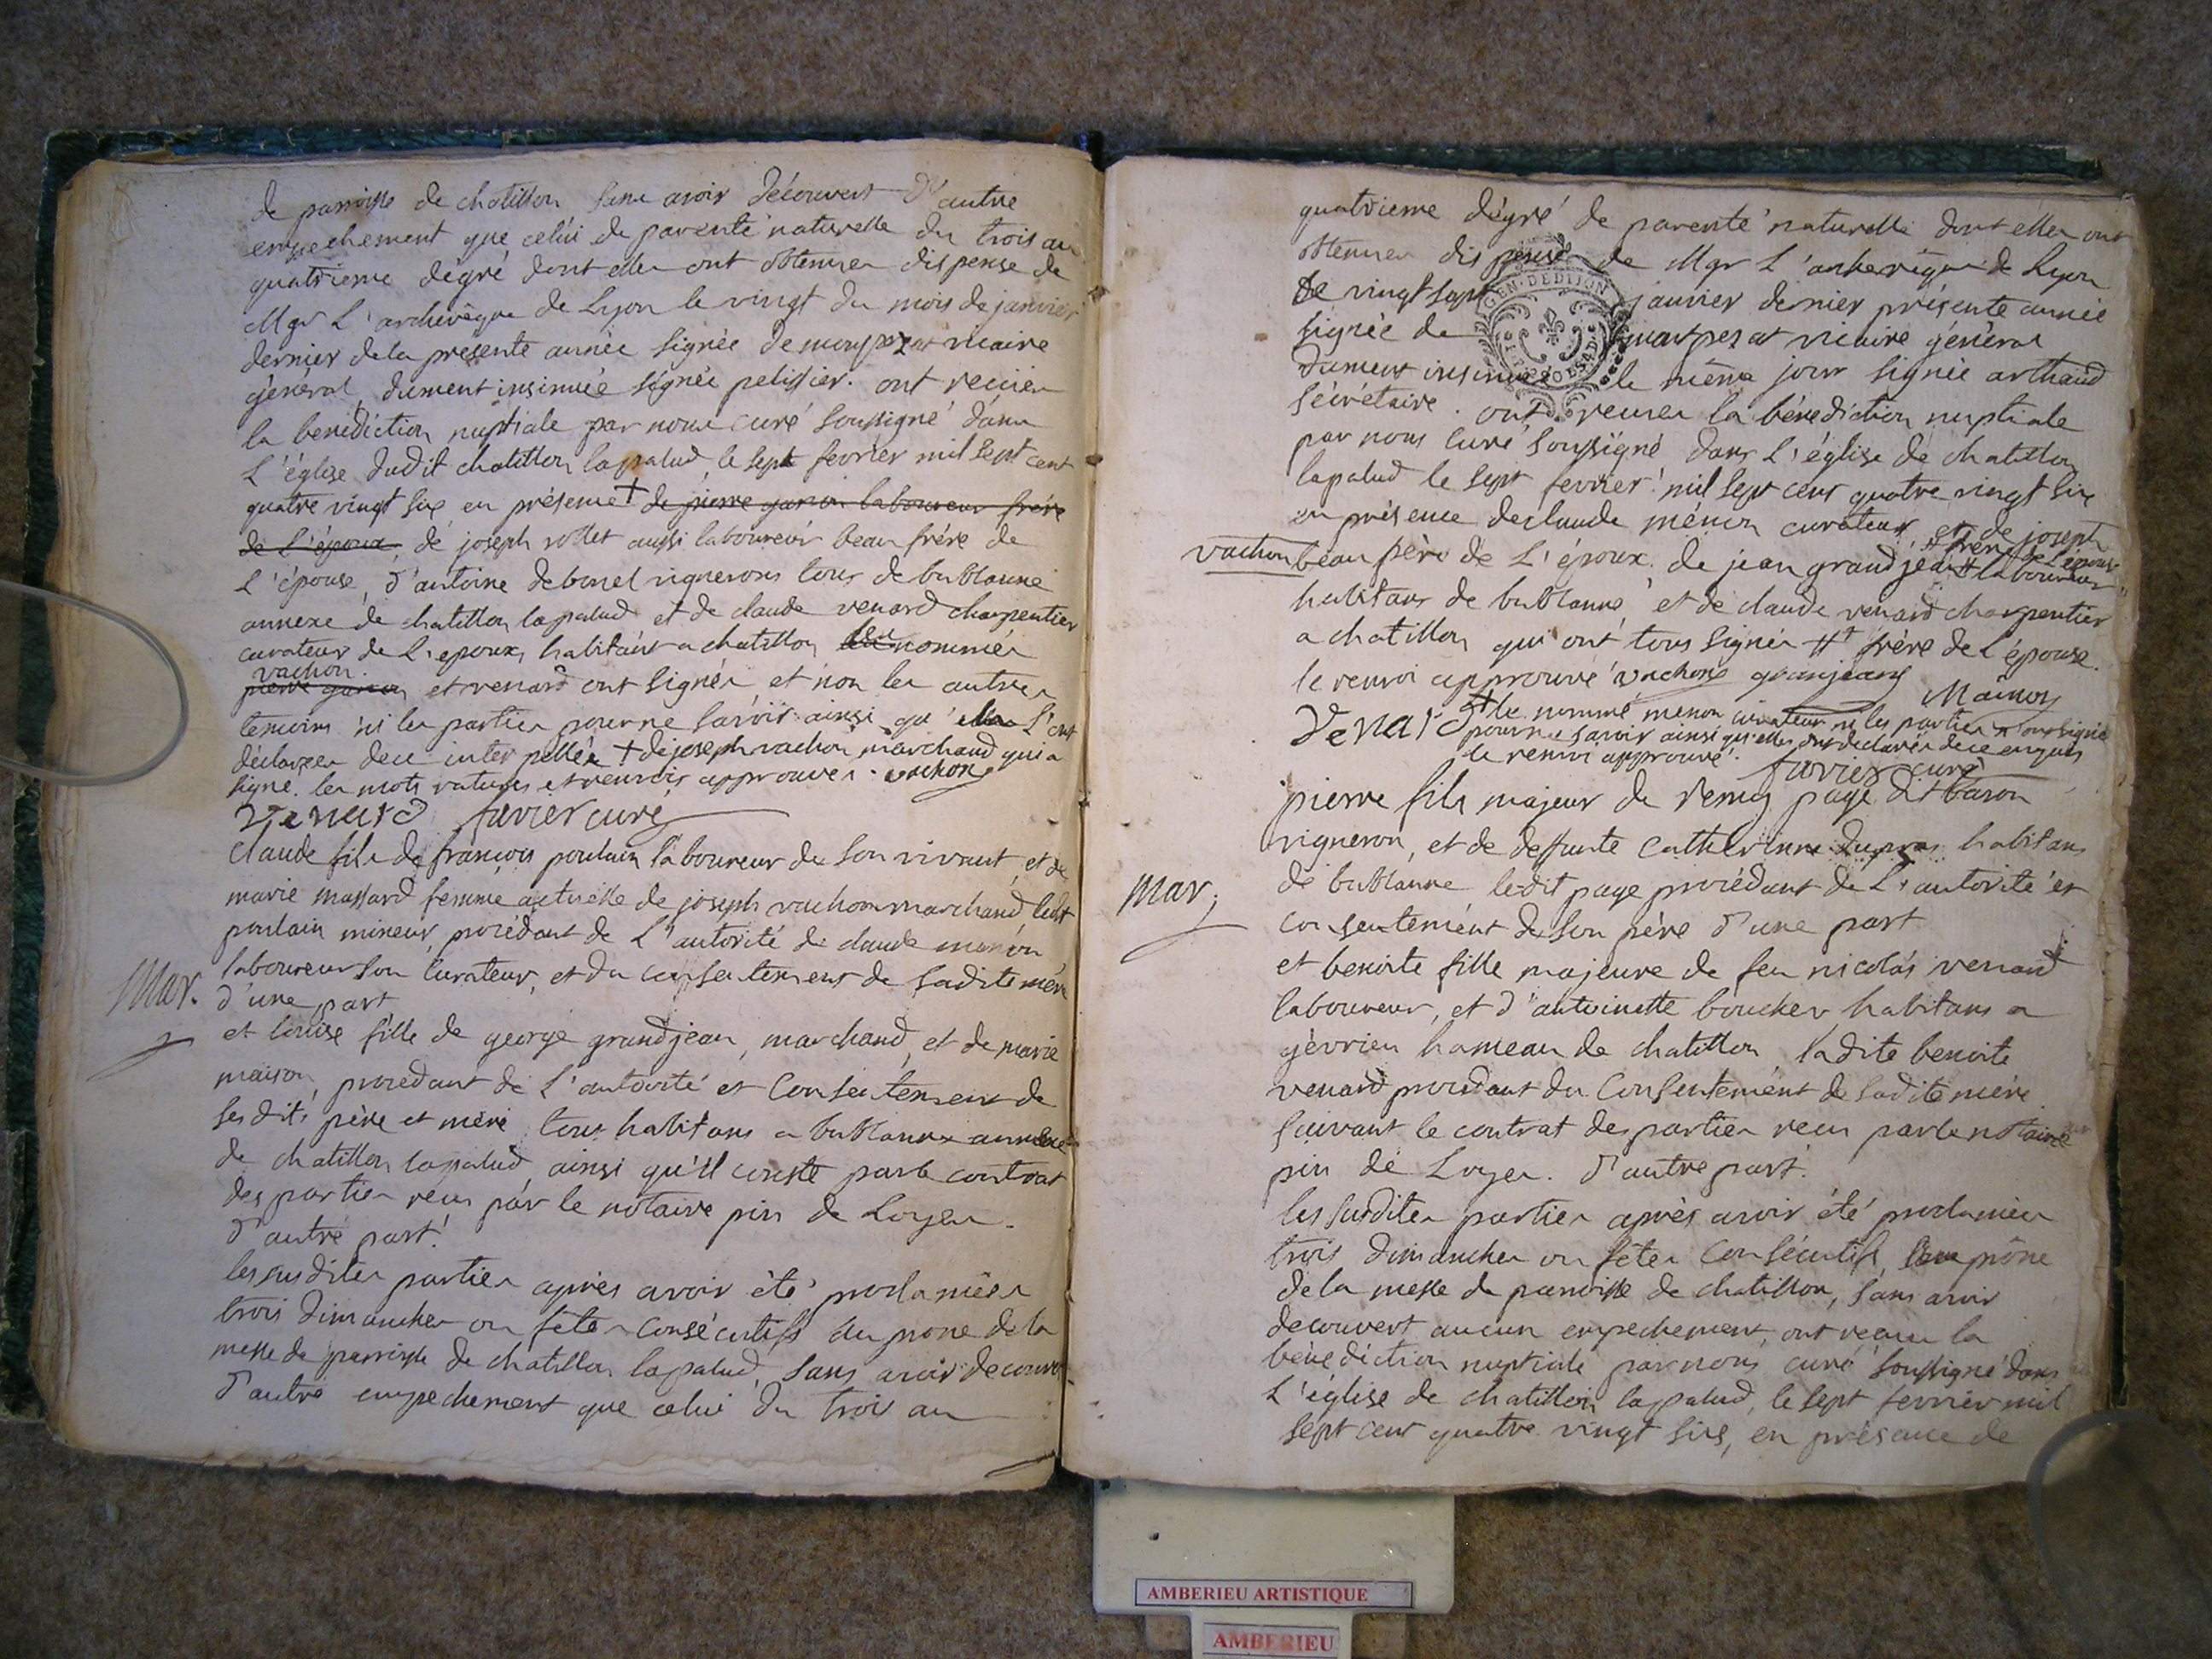 de parroisse de chatillon sans avoir découvert d'autre
empechement que celui de parenté naturelle du trois au
quatrieme dégré dont elles ont obtenues dispense de
Mgr L'archevêque de Lyon le vingt du mois de janvier
dernier de la presente année signée de monpezat vicaire
géneral, dument insinuée signée pelissier. ont reçues
la benediction nuptiale par nous curé soussigné dans
L'église dudit chatillon lapalud, le sept fevrier mil sept cent
quatre vingt six en présence + de pierre garon laboureur frére
de L'époux, de joseph rollet aussi laboureur beau frére de
L'épouse, d'antoine debonel vignerons tous de bublanne
annexe de chatillon lapalud et de claude venard charpentier
curateur de L'epoux, habitant a chatillon nommés
vachon
pierre garon et venard ont signés, et non les autres
temoins ni les parties pour ne savoir ainsi qu' L'ont
déclarées de ce interpellés + de joseph vachon marchand qui a
signé. les mots ratures et renvois approuves. vachon
venard favier curé
claude fils de françois poulain laboureur de son vivant, et de
marie massard femme actuelle de joseph vachon marchand, ledit
poulain mineur, procédant de L'autorité de claude menon
laboureur son curateur, et du consentement de sadite mére
Mar. d'une part
et louise fille de george grandjean, marchand, et de marie
maison, procedant de L'autorité et consentement de
sesdits pére et mére, tous habitans a bublanne annexe
de chatillon lapalud, ainsi qu'il conste par le contrat
des parties reçu par le notaire pin de Loyes.
d'autre part.
les susdites parties après avoir été proclamées
trois dimanches ou fêtes consécutifs au prone de la
messe de parroisse de chatillon lapalud, sans avoir decouvert
d'autre empechement que celui du trois au
quatrieme dégré de parenté naturelle dont elles ont
obtenues dispense de Mgr L'archevêque de Lyon
le vingt sept janvier dernier présente année
signée de monpezat vicaire général
dument insinuée le même jour signée arthaud
sécrétaire. ont reçues la bénediction nuptiale
par nous curé soussigné dans L'église de chatillon
lapalud le sept fevrier mil sept cent quatre vingt six
en présence de claude ménon curateur, et de joseph
# frére de L'épouse
vachon beau pére de L'époux. de jean grandjean # laboureur
habitans de bublanne et de claude venard charpentier
a chatillon qui ont tous signés # frére de L'épouse.
le renvoi approuvé vachon granjean Mainon
venard + le nommé menon curateur ni les parties n'ont signé
pour ne savoir ainsi qu'elles ont declarées de ce enquis
le renvoi approuvé. favier curé
pierre fils majeur de remy page dit baron
vigneron, et de deffunte Catherinne dupras habitans
Mar. de bublanne ledit page procédant de L'autorité et
consentement de son pére d'une part
et benoite fille majeure de feu nicolas venard
laboureur, et d'antoinette boucher habitans a
gévrieu hameau de chatillon ladite benoite
venard procedant du Consentement de sadite mére
suivant le contrat des parties reçu par le notaire
pin de Loyes. d'autre part.
les susdites parties après avoir été proclamées
trois dimanches ou fêtes Consécutifs, prône
de la messe de parroisse de chatillon, sans avoir
decouvert aucun empechement, ont reçues la
bénediction nuptiale par nous curé soussigné dans
L'église de chatillon lapalud, le sept fevrier mil
sept cent quatre vingt six, en présence de
GEN. DE DIJON
AMBERIEU ARTISTIQUE
AMBERIEU